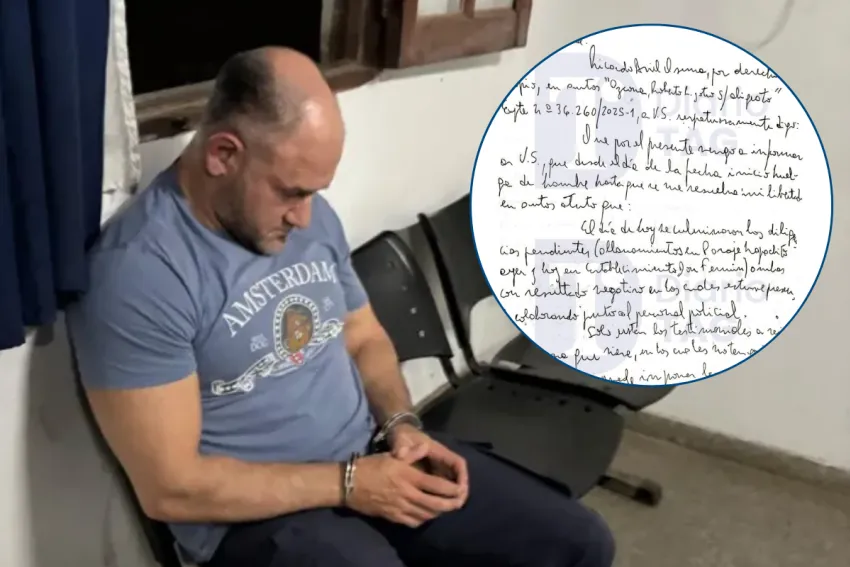 AMSTERDAM
Ricardo Ariel Osuna, por derecho
en autos "Ozcona, Roberto L. y otro S/ abigeato"
expte Nº 36.260/2025-1, a V.S. respetuosamente digo:
Que por el presente vengo a informar
a V.S., que desde el día de la fecha inicio huel-
ga de hambre hasta que se me resuelva mi libertad
en autos atento que:
El día de hoy se culminaron las dilige
cias pendientes (allanamientos en Paraje
ayer y hoy en Establecimiento Don Fermin) ambos
con resultado negativo en los cuales estuve presen
colaborando junto al personal policial.
Solo restan los testimoniales a re
que viere, en los cuales no ten
Diario
TAG
Diario
TAG